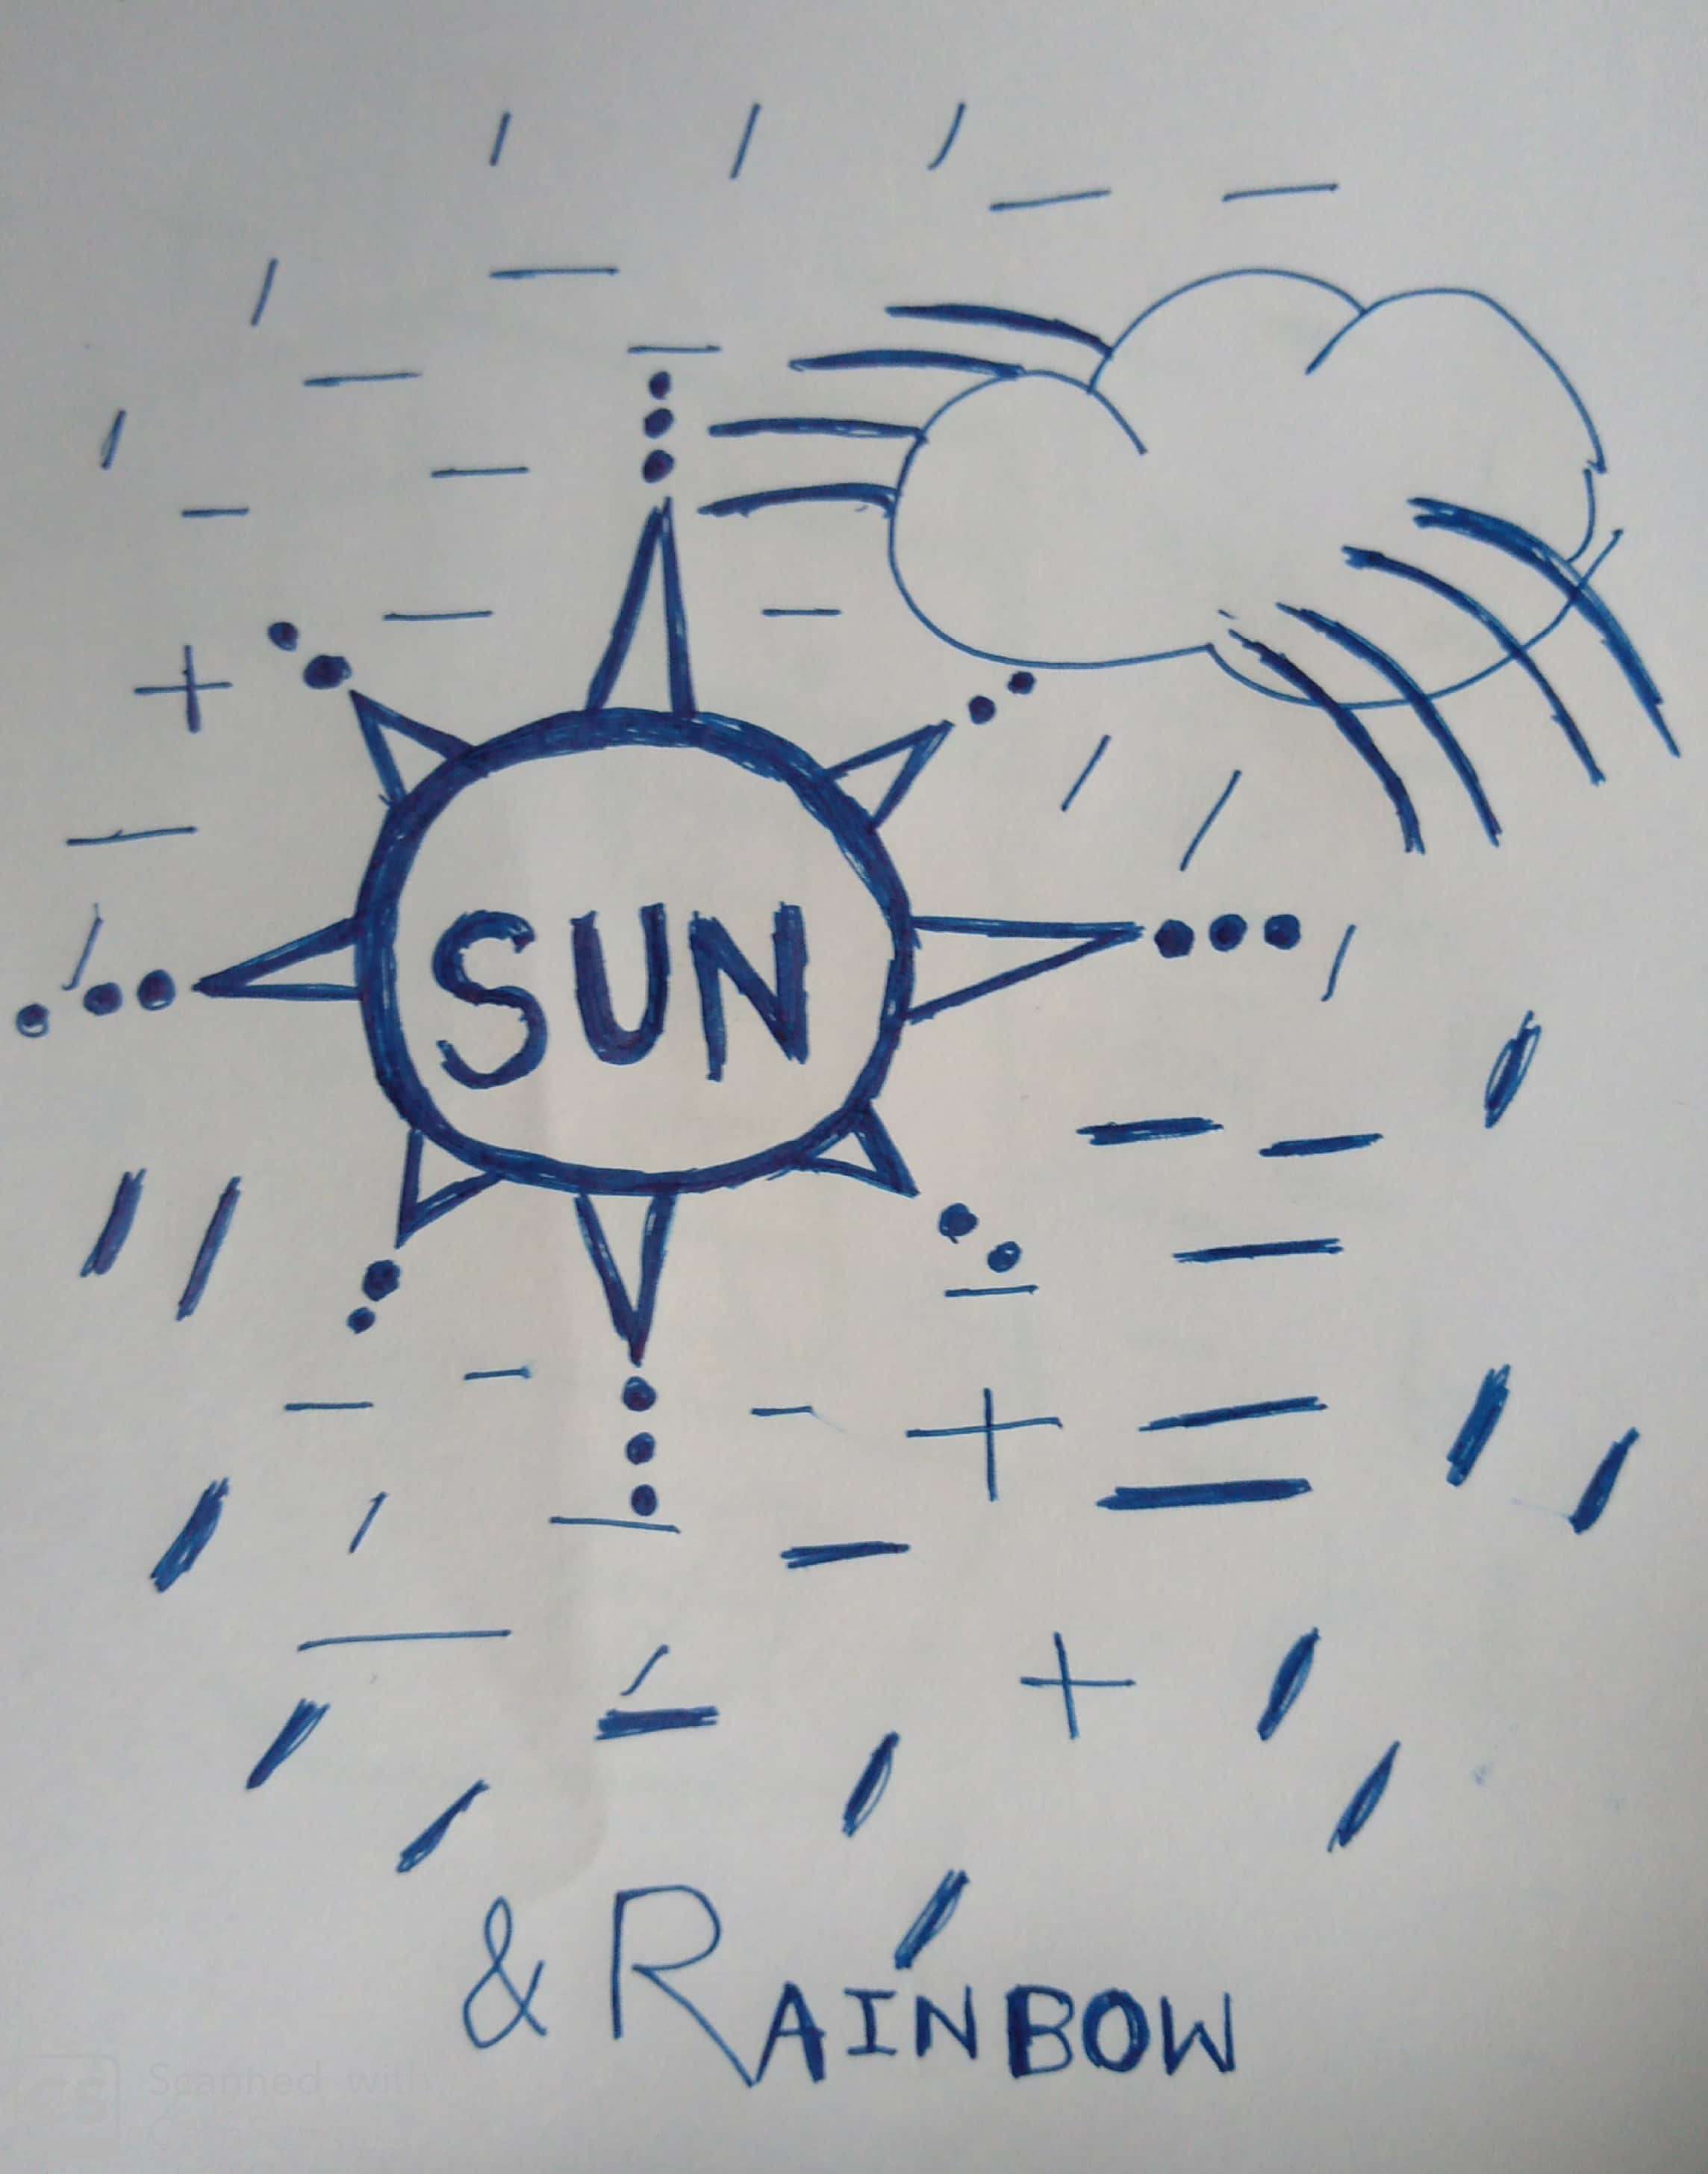 SUN
& RAINBOW
Scanned with